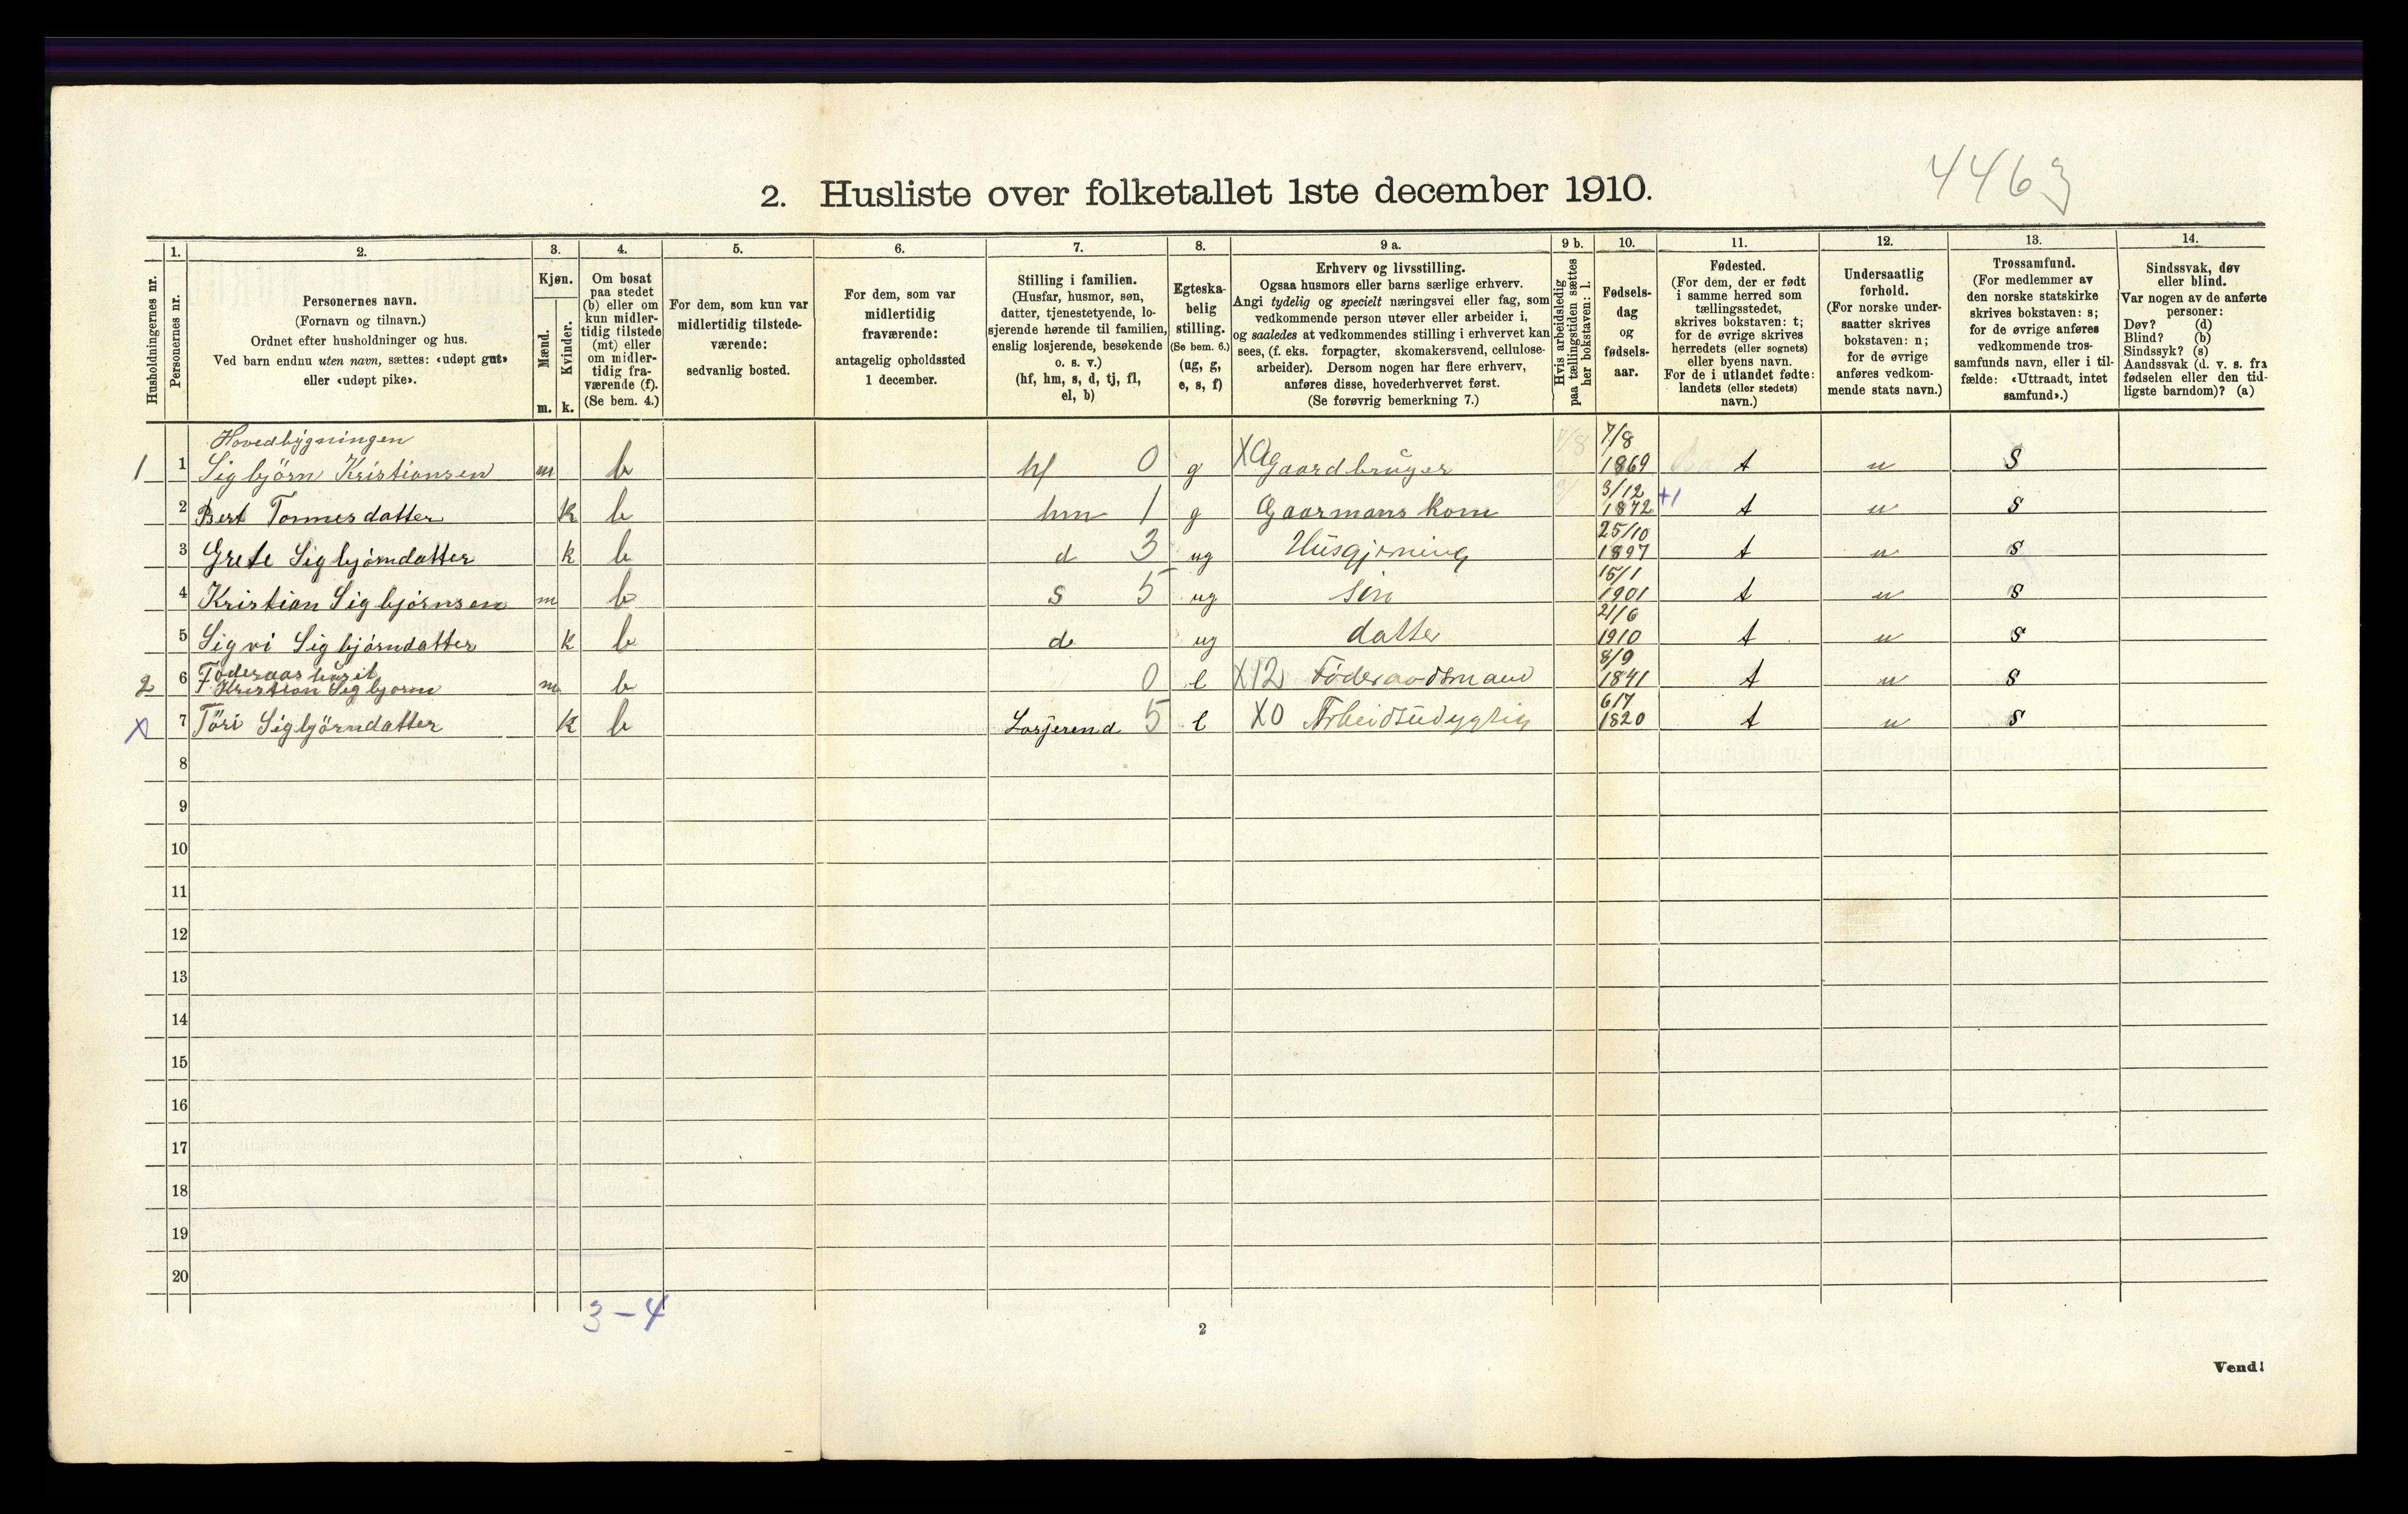 4463
2. Husliste over folketallet 1ste december 1910.
Husholdningernes nr.
1.
Personernes nr.
2.
Personernes navn.
(Fornavn og tilnavn.)
Ordnet efter husholdninger og hus.
Ved barn endnu uten navn, sættes: «udøpt gut»
eller «udøpt pike».
3.
Kjøn.
Mænd.
Kvinder.
m. k.
4.
Om bosat
paa stedet
(b) eller om
kun midler-
tidig tilstede
(mt) eller
om midler-
tidig fra-
værende (f).
(Se bem. 4.)
5.
For dem, som kun var
midlertidig tilstede-
værende:
sedvanlig bosted.
6.
For dem, som var
midlertidig
fraværende:
antagelig opholdssted
1 december.
7.
Stilling i familien.
(Husfar, husmor, søn,
datter, tjenestetyende, lo-
sjerende hørende til familien,
enslig losjerende, besøkende
o. s. v.)
(hf, hm, s, d, tj, fl,
el, b)
8.
Egteska-
belig
stilling.
(Se bem. 6.)
(ug, g,
e, s, f)
9 a.
Erhverv og livsstilling.
Ogsaa husmors eller barns særlige erhverv.
Angi tydelig og specielt næringsvei eller fag, som
vedkommende person utøver eller arbeider i,
og saaledes at vedkommendes stilling i erhvervet kan
sees, (f. eks. forpagter, skomakersvend, cellulose-
arbeider). Dersom nogen har flere erhverv,
anføres disse, hovederhvervet først.
(Se forøvrig bemerkning 7.)
9 b.
Hvis arbeidsledig
paa tællingstiden sættes
her bokstaven: l.
10.
Fødsels-
dag
og
fødsels-
aar.
11.
Fødested.
(For dem, der er født
i samme herred som
tællingsstedet,
skrives bokstaven: t;
for de øvrige skrives
herredets (eller sognets)
eller byens navn.
For de i utlandet fødte:
landets (eller stedets)
navn.)
12.
Undersaatlig
forhold.
(For norske under-
saatter skrives
bokstaven: n;
for de øvrige
anføres vedkom-
mende stats navn.)
13.
Trossamfund.
(For medlemmer av
den norske statskirke
skrives bokstaven: s;
for de øvrige anføres
vedkommende tros-
samfunds navn, eller i til-
fælde: «Uttraadt, intet
samfund».)
14.
Sindssvak, døv
eller blind.
Var nogen av de anførte
personer:
Døv? (d)
Blind? (b)
Sindssyk? (s)
Aandssvak (d. v. s. fra
fødselen eller den tid-
ligste barndom)? (a)
Hovedbygningen
1 1 Sigbjörn Kristiansen m b hf 0 g XA Gaardbruger 7/8 1869 t n S
2 Bert Tonnesdatter k b hm 1 g Gaarmans kone 3/12 1872 +1 t n S
3 Grete Sigbjörndatter k b d 3 ug Husgjerning 25/10 1897 t n S
4 Kristian Sigbjörnsen m b s 5 ug sön 15/1 1901 t n S
5 Sigvi Sigbjörndatter k b d ug datter 21/6 1910 t n S
Föderaas huset
2 6 Kristian Sigbjorns m b 0 e X12 Föderaadsmand 8/9 1841 t n S
X 7 Töri Sigbjörndatter k b Losjerend 5 e X0 Arbeidsudygtig 6/7 1820 t n S
8
9
10
11
12
13
14
15
16
17
18
19
20
3-4
2
Vend!